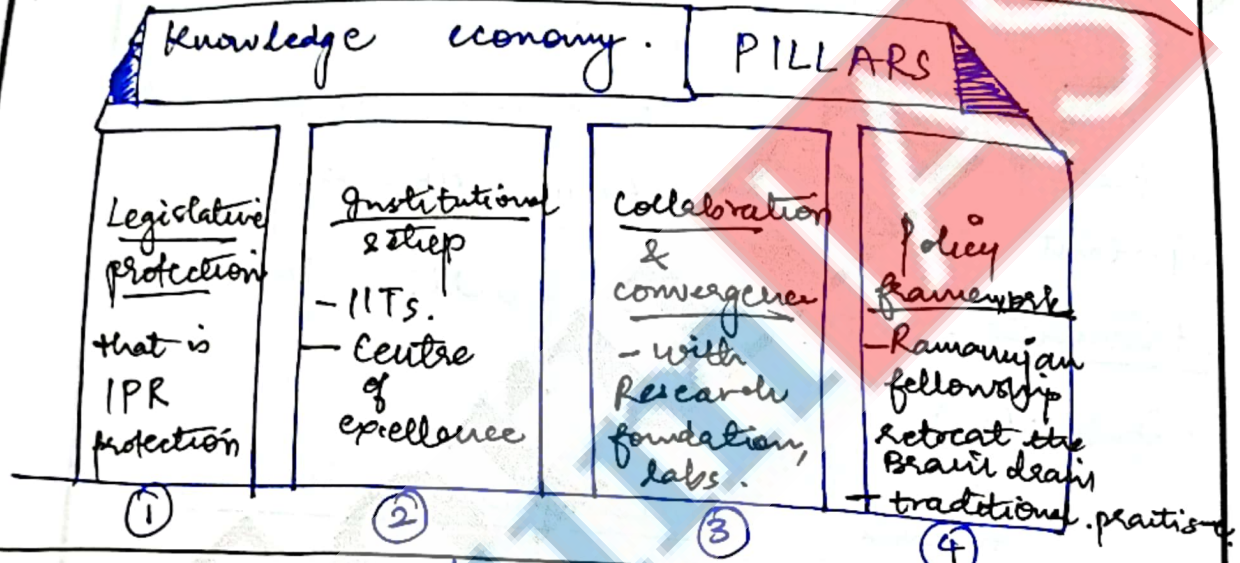 Knowledge economy.
PILLARS
Legislative
protection
that is
IPR
protection
①
Institutional
setup
- IITs.
- Centre
of
excellence
②
Collaboration
&
convergence
- with
Research
foundation,
labs.
③
Policy
framework
- Ramanujan
fellowship
the
Brain drain
- traditional practise.
④
IAS